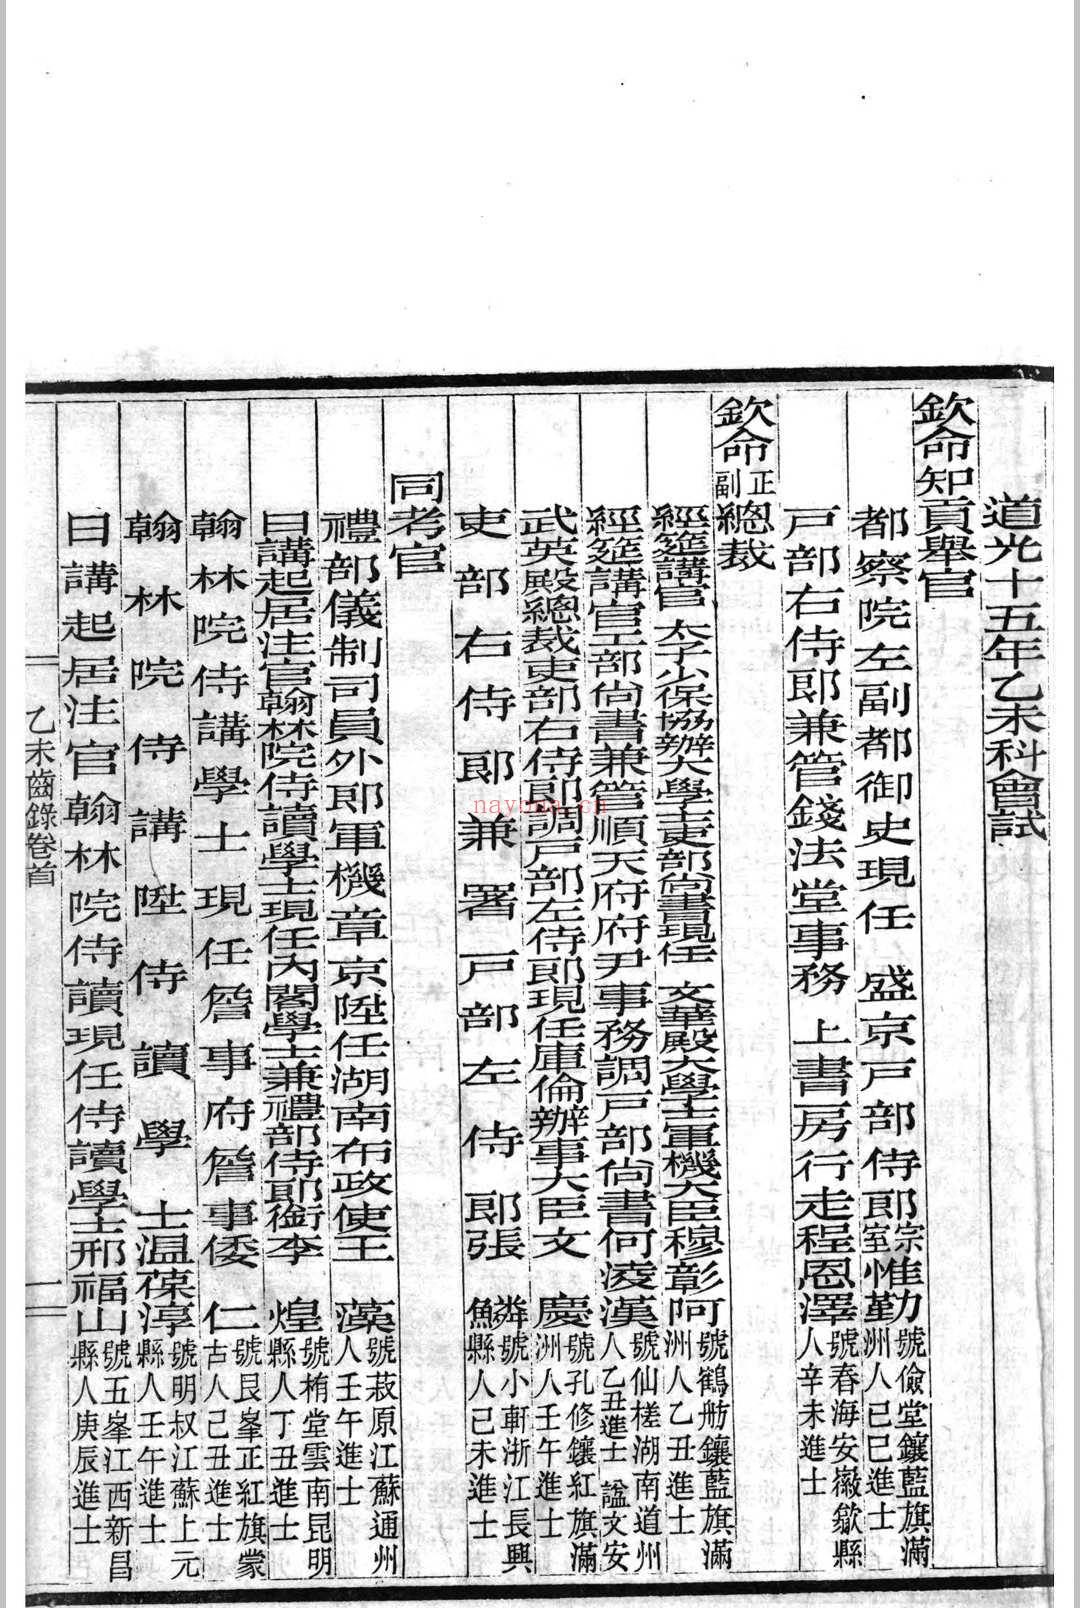 道光十五年乙未科會試
欽命知貢舉官
都察院左副都御史現任 盛京戶部侍郎宗室惟勤號儉堂鑲藍旗滿洲人己巳進士
戶部右侍郎兼管錢法堂事務 上書房行走程恩澤號春海安徽歙縣人辛未進士
欽命正副總裁
經筵講官 太子少保協辦大學士吏部尚書現任 文華殿大學士軍機大臣穆彰阿號鶴舫鑲藍旗滿洲人乙丑進士
經筵講官工部尚書兼管順天府府尹事務調戶部尚書何凌漢號仙槎湖南道州人乙丑進士 諡文安
武英殿總裁吏部右侍郎調戶部左侍郎現任庫倫辦事大臣文 慶號孔修鑲紅旗滿洲人壬午進士
吏部右侍郎兼署戶部左侍郎張 鱗號小軒浙江長興縣人己未進士
同考官
禮部儀制司員外郎軍機章京陞任湖南布政使王 藻號菽原江蘇通州人壬午進士
日講起居注官翰林院侍讀學士現任內閣學士兼禮部侍郎銜李 煌號栯堂雲南昆明縣人丁丑進士
翰林院侍講學士現任詹事府詹事倭 仁號艮峯正紅旗蒙古人己丑進士
翰林院侍講陞侍讀學士溫葆淳號明叔江蘇上元縣人壬午進士
日講起居注官翰林院侍讀現任侍讀學士邢福山號五峯江西新昌縣人庚辰進士
乙未齒錄卷首
一
nayona.cn